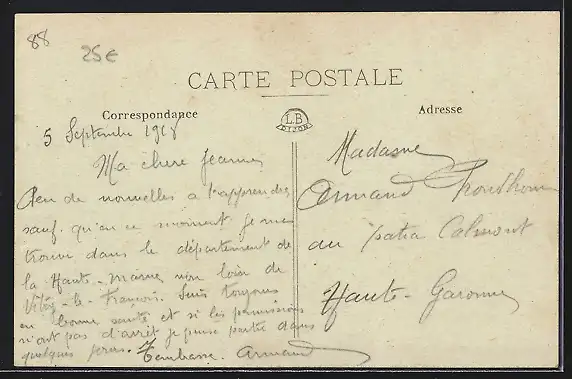 88
25€
CARTE POSTALE
Correspondance
LB
DIJON
Adresse
5 Septembre 1918
Ma chere Jeanne,
Peu de nouvelles a t'apprendre,
sauf qu'en ce moment je me
trouve dans le département de
la Haute-marne non loin de
Vitry-le-François. Suis toujours
en bonne santé et si les permissions
n'ont pas d'arrêt je pense partir dans
quelques jours. T'embrasse. Armand
Madame
Armand
au patia Calmont
Haute-Garonne